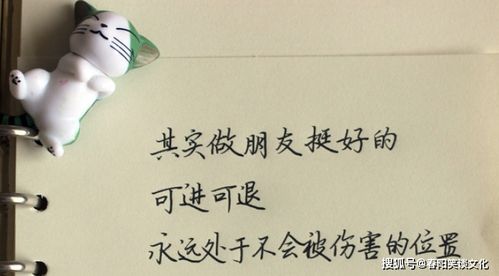 其实做朋友挺好的
可进可退
永远处于不会被伤害的位置
搜狐号@春阳笑谈文化